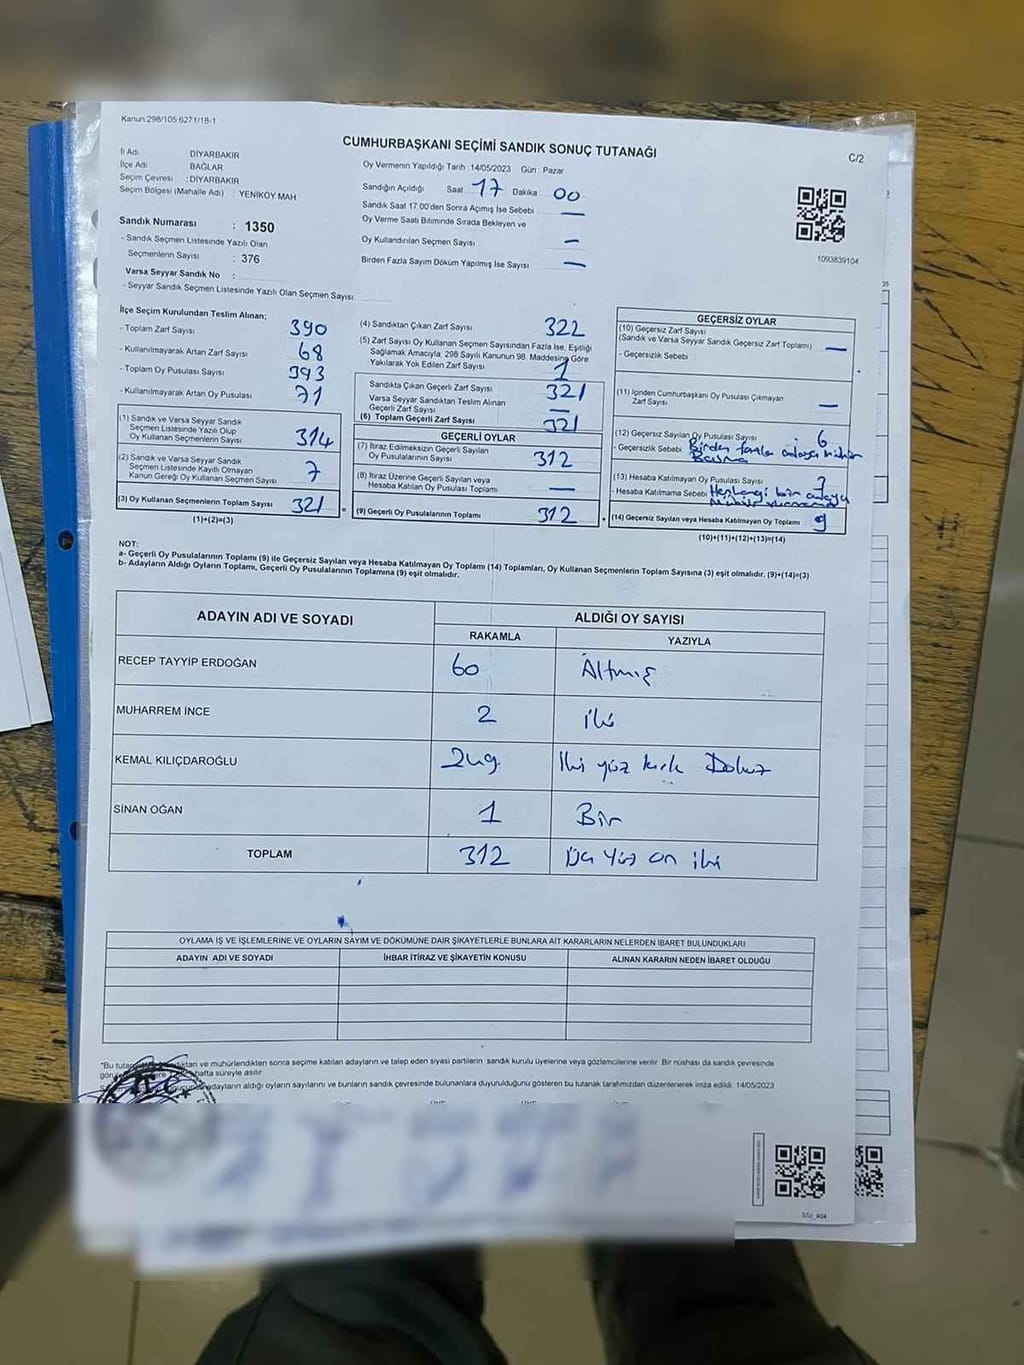 Kanun:298/105:6271/18-1
CUMHURBAŞKANI SEÇİMİ SANDIK SONUÇ TUTANAĞI
C/2
İl Adı : DİYARBAKIR
İlçe Adı : BAĞLAR
Seçim Çevresi : DİYARBAKIR
Seçim Bölgesi (Mahalle Adı) : YENİKÖY MAH
Sandık Numarası : 1350
- Sandık Seçmen Listesinde Yazılı Olan
Seçmenlerin Sayısı : 376
Varsa Seyyar Sandık No :
- Seyyar Sandık Seçmen Listesinde Yazılı Olan Seçmen Sayısı:
Oy Vermenin Yapıldığı Tarih : 14/05/2023 Gün : Pazar
Sandığın Açıldığı Saat 17 Dakika 00
Sandık Saat 17:00'den Sonra Açımış İse Sebebi —
Oy Verme Saati Bitiminde Sırada Bekleyen ve
Oy Kullandırılan Seçmen Sayısı —
Birden Fazla Sayım Döküm Yapılmış İse Sayısı —
1093839104
İlçe Seçim Kurulundan Teslim Alınan;
- Toplam Zarf Sayısı 390
- Kullanılmayarak Artan Zarf Sayısı 68
- Toplam Oy Pusulası Sayısı 393
- Kullanılmayarak Artan Oy Pusulası 71
(1) Sandık ve Varsa Seyyar Sandık
Seçmen Listesinde Yazılı Olup
Oy Kullanan Seçmenlerin Sayısı 314
(2) Sandık ve Varsa Seyyar Sandık
Seçmen Listesinde Kayıtlı Olmayan
Kanun Gereği Oy Kullanan Seçmen Sayısı 7
(3) Oy Kullanan Seçmenlerin Toplam Sayısı 321 =
(1)+(2)=(3)
(4) Sandıktan Çıkan Zarf Sayısı 322
(5) Zarf Sayısı Oy Kullanan Seçmen Sayısından Fazla İse, Eşitliği
Sağlamak Amacıyla, 298 Sayılı Kanunun 98. Maddesine Göre
Yakılarak Yok Edilen Zarf Sayısı 1
Sandıkta Çıkan Geçerli Zarf Sayısı 321
Varsa Seyyar Sandıktan Teslim Alınan
Geçerli Zarf Sayısı —
(6) Toplam Geçerli Zarf Sayısı 321
GEÇERLİ OYLAR
(7) İtiraz Edilmeksizin Geçerli Sayılan
Oy Pusulalarının Sayısı 312
(8) İtiraz Üzerine Geçerli Sayılan veya
Hesaba Katılan Oy Pusulası Toplamı —
(9) Geçerli Oy Pusulalarının Toplamı 312 +
GEÇERSİZ OYLAR
(10) Geçersiz Zarf Sayısı
(Sandık ve Varsa Seyyar Sandık Geçersiz Zarf Toplamı) —
- Geçersizlik Sebebi
(11) İçinden Cumhurbaşkanı Oy Pusulası Çıkmayan
Zarf Sayısı —
(12) Geçersiz Sayılan Oy Pusulası Sayısı : 6
- Geçersizlik Sebebi Birden fazla
(13) Hesaba Katılmayan Oy Pusulası Sayısı
- Hesaba Katılmama Sebebi Herhangi bir
(14) Geçersiz Sayılan veya Hesaba Katılmayan Oy Toplamı 9
(10)+(11)+(12)+(13)=(14)
NOT:
a- Geçerli Oy Pusulalarının Toplamı (9) ile Geçersiz Sayılan veya Hesaba Katılmayan Oy Toplamı (14) Toplamları, Oy Kullanan Seçmenlerin Toplam Sayısına (3) eşit olmalıdır. (9)+(14)=(3)
b- Adayların Aldığı Oyların Toplamı, Geçerli Oy Pusulalarının Toplamına (9) eşit olmalıdır.
ADAYIN ADI VE SOYADI ALDIĞI OY SAYISI
RAKAMLA YAZIYLA
RECEP TAYYİP ERDOĞAN 60 Altmış
MUHARREM İNCE 2 iki
KEMAL KILIÇDAROĞLU 249 İki yüz kırk Dokuz
SİNAN OĞAN 1 Bir
TOPLAM 312 Üç Yüz on iki
OYLAMA İŞ VE İŞLEMLERİNE VE OYLARIN SAYIM VE DÖKÜMÜNE DAİR ŞİKAYETLERLE BUNLARA AİT KARARLARIN NELERDEN İBARET BULUNDUKLARI
ADAYIN ADI VE SOYADI İHBAR İTİRAZ VE ŞİKAYETİN KONUSU ALINAN KARARIN NEDEN İBARET OLDUĞU
*Bu ve mühürlendikten sonra seçime katılan adayların ve talep eden siyasi partilerin sandık kurulu üyelerine veya gözlemcilerine verilir. Bir nüshası da sandık çevresinde
hafta süreyle asılır.
adayların aldığı oyların sayılarını ve bunların sandık çevresinde bulunanlara duyurulduğunu gösteren bu tutanak tarafımızdan düzenlenerek imza edildi. 14/05/2023